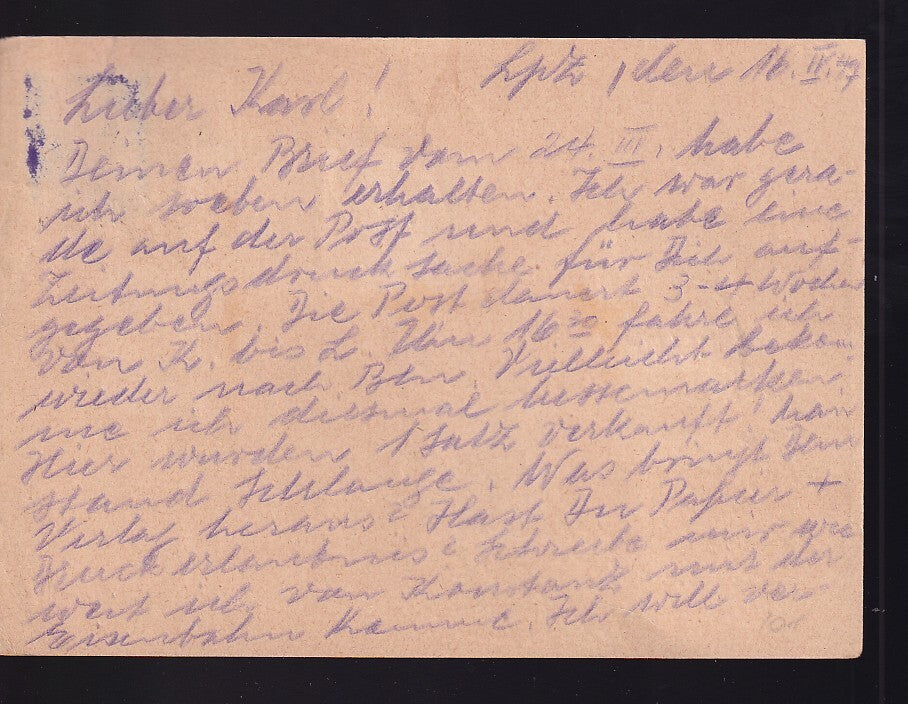 Lpz, den 16. IV. 47
Lieber Karl!
Deinen Brief vom 24. III. habe
ich soeben erhalten. Ich war gera-
de auf der Post und habe eine
Zeitungsdrucksache für Dich auf-
gegeben. Die Post dauert 3-4 Wochen
von K. bis L. Um 16³⁰ fahre ich
wieder nach Bln. Vielleicht bekom-
me ich diesmal Messemarken.
Hier wurden 1 Satz verkauft! Man
stand Schlange. Was bringt Dein
Verlag heraus? Hast Du Papier +
Druckerlaubnis? Schreibe mir wie
weit ich von Konstanz mit der
Eisenbahn komme. Ich will ver-